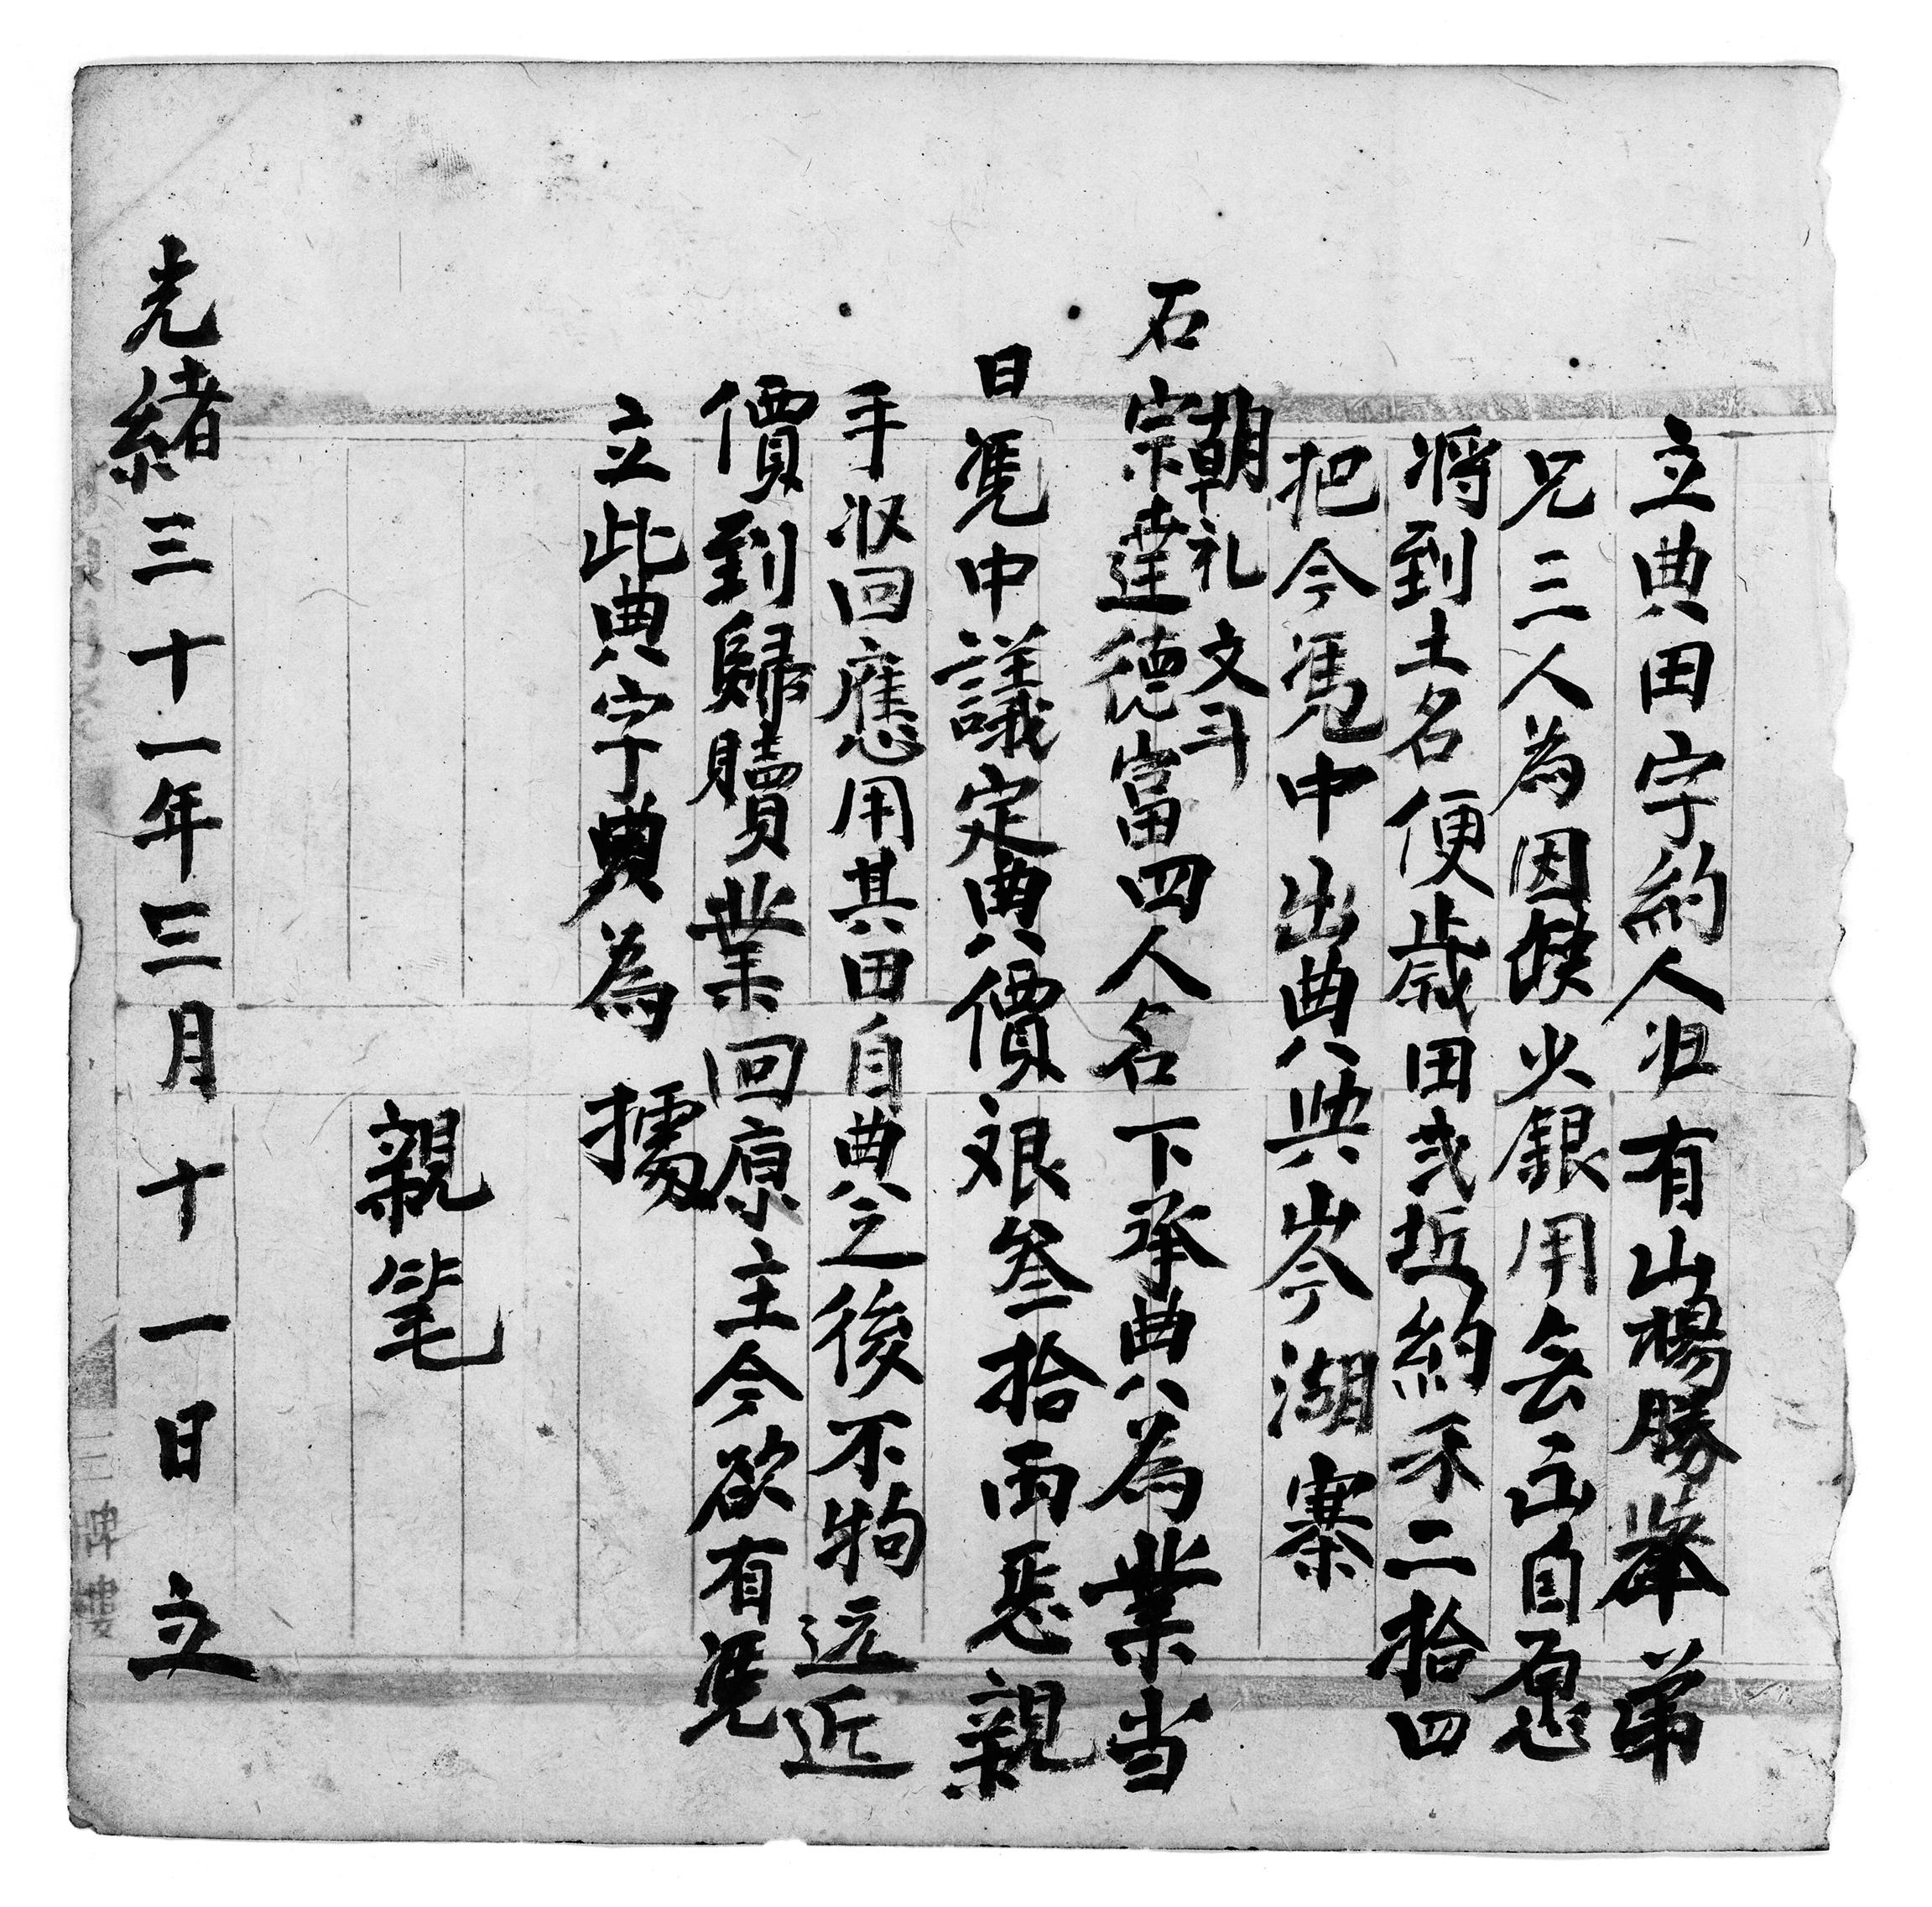 立典田字約人沮有山楊勝舉弟
兄三人為因缺少銀用無岀自愿
将到土名便歲田弍坵約禾二拾四
把今馮中出典典岑湖寨
朝礼 文斗
石宗達德富四人名下承典為業当
日凴中議定典價艮叁拾両悉親
手收回應用其田自典之後不拘远近
價到歸贖業回原主今欲有凴
立此典字典為據
親筆
光緒三十一年三月十一日立